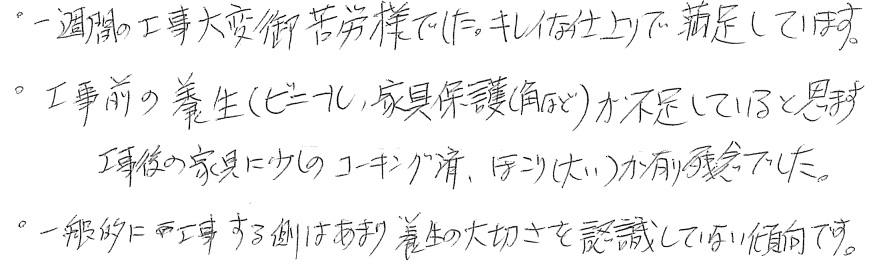 。一週間の工事大変御苦労様でした。キレイな仕上りで満足しています。
。工事前の養生(ビニール,家具保護(角など)が不足していると思ます
工事後の家具に少しのコーキング済、ほこり(大い)が有り残念でした。
。一般的に工事する側はあまり養生の大切さを認識していない傾向です。